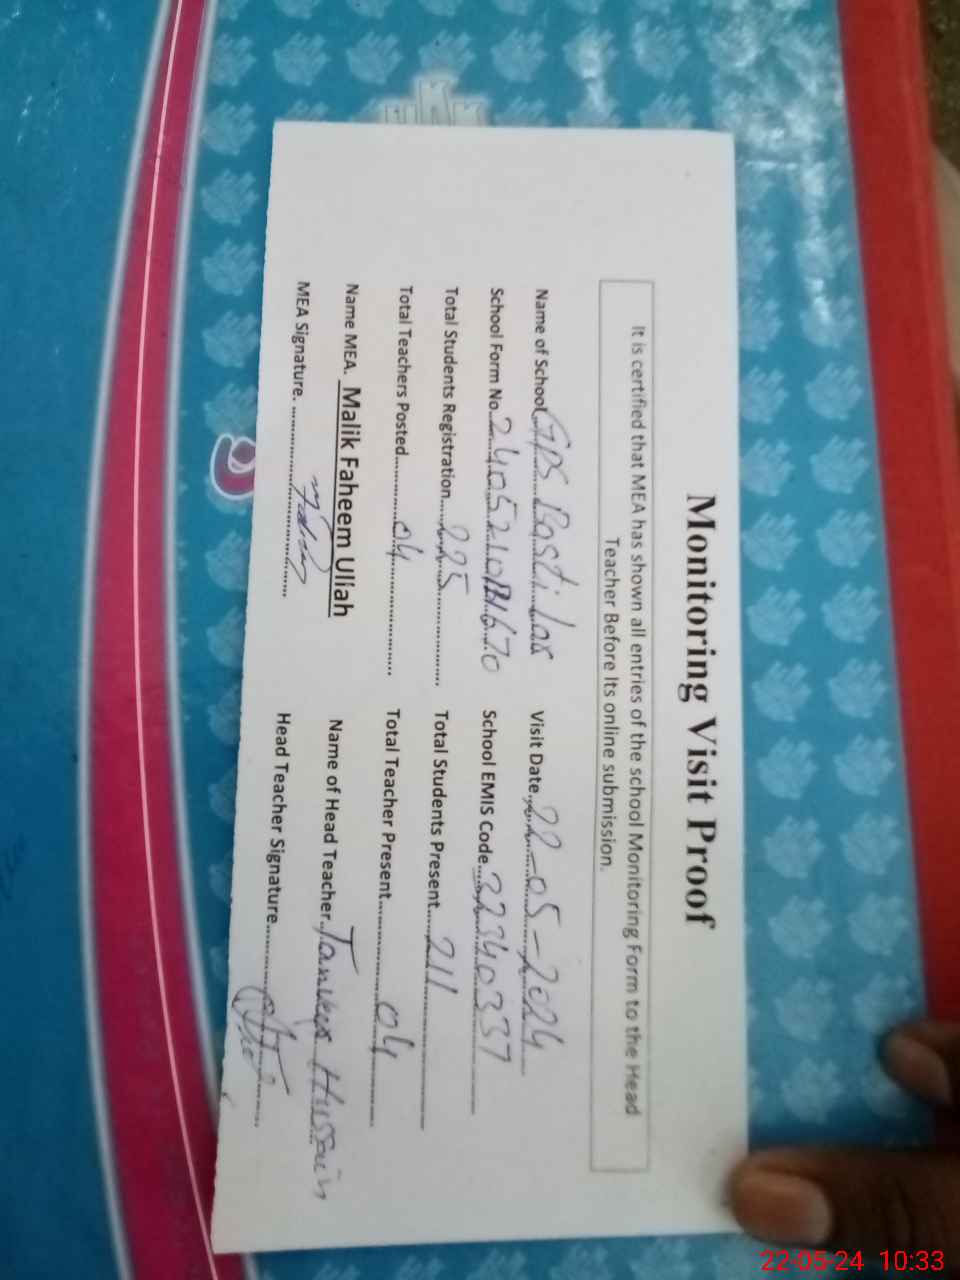 Monitoring Visit Proof
It is certified that MEA has shown all entries of the school Monitoring Form to the Head
Teacher Before Its online submission.
Name of School GPS Basti Lar Visit Date 22-05-2024
School Form No. School EMIS Code 32340337
Total Students Registration 225 Total Students Present 211
Total Teachers Posted 04 Total Teacher Present 04
Name MEA. Malik Faheem Ullah Name of Head Teacher Hussain
MEA Signature. Head Teacher Signature
22-05-24 10:33